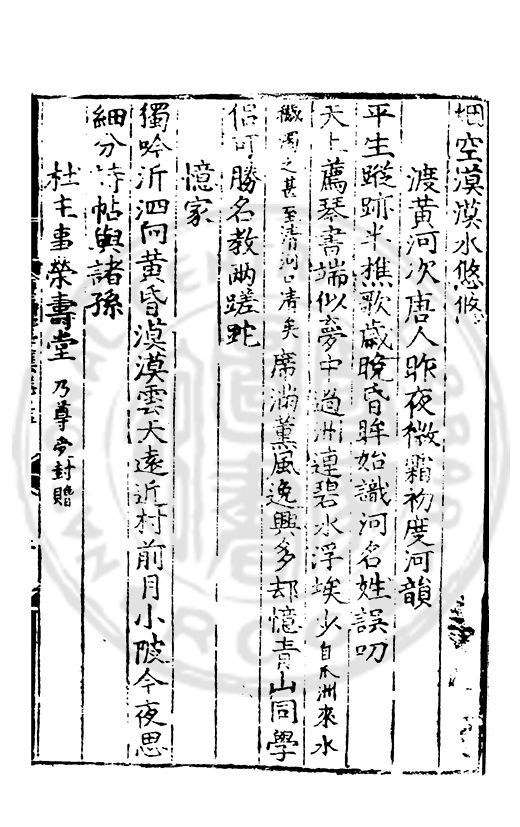 烟空漠漠水悠悠
渡黃河次唐人昨夜微霜初度河韻
平生蹤跡半樵歌歲晚昏眸始識河名姓誤叨
天上薦琴書端似夢中過洲連碧水浮埃少自瓜洲來水
濁之甚至清河口清矣席滿薰風逸興多却憶青山同學
侶可勝名教兩蹉跎
憶家
獨吟沂泗向黃昏漠漠雲天遠近村前月小陂今夜思
細分詩帖與諸孫
杜主事榮壽堂乃尊受封贈